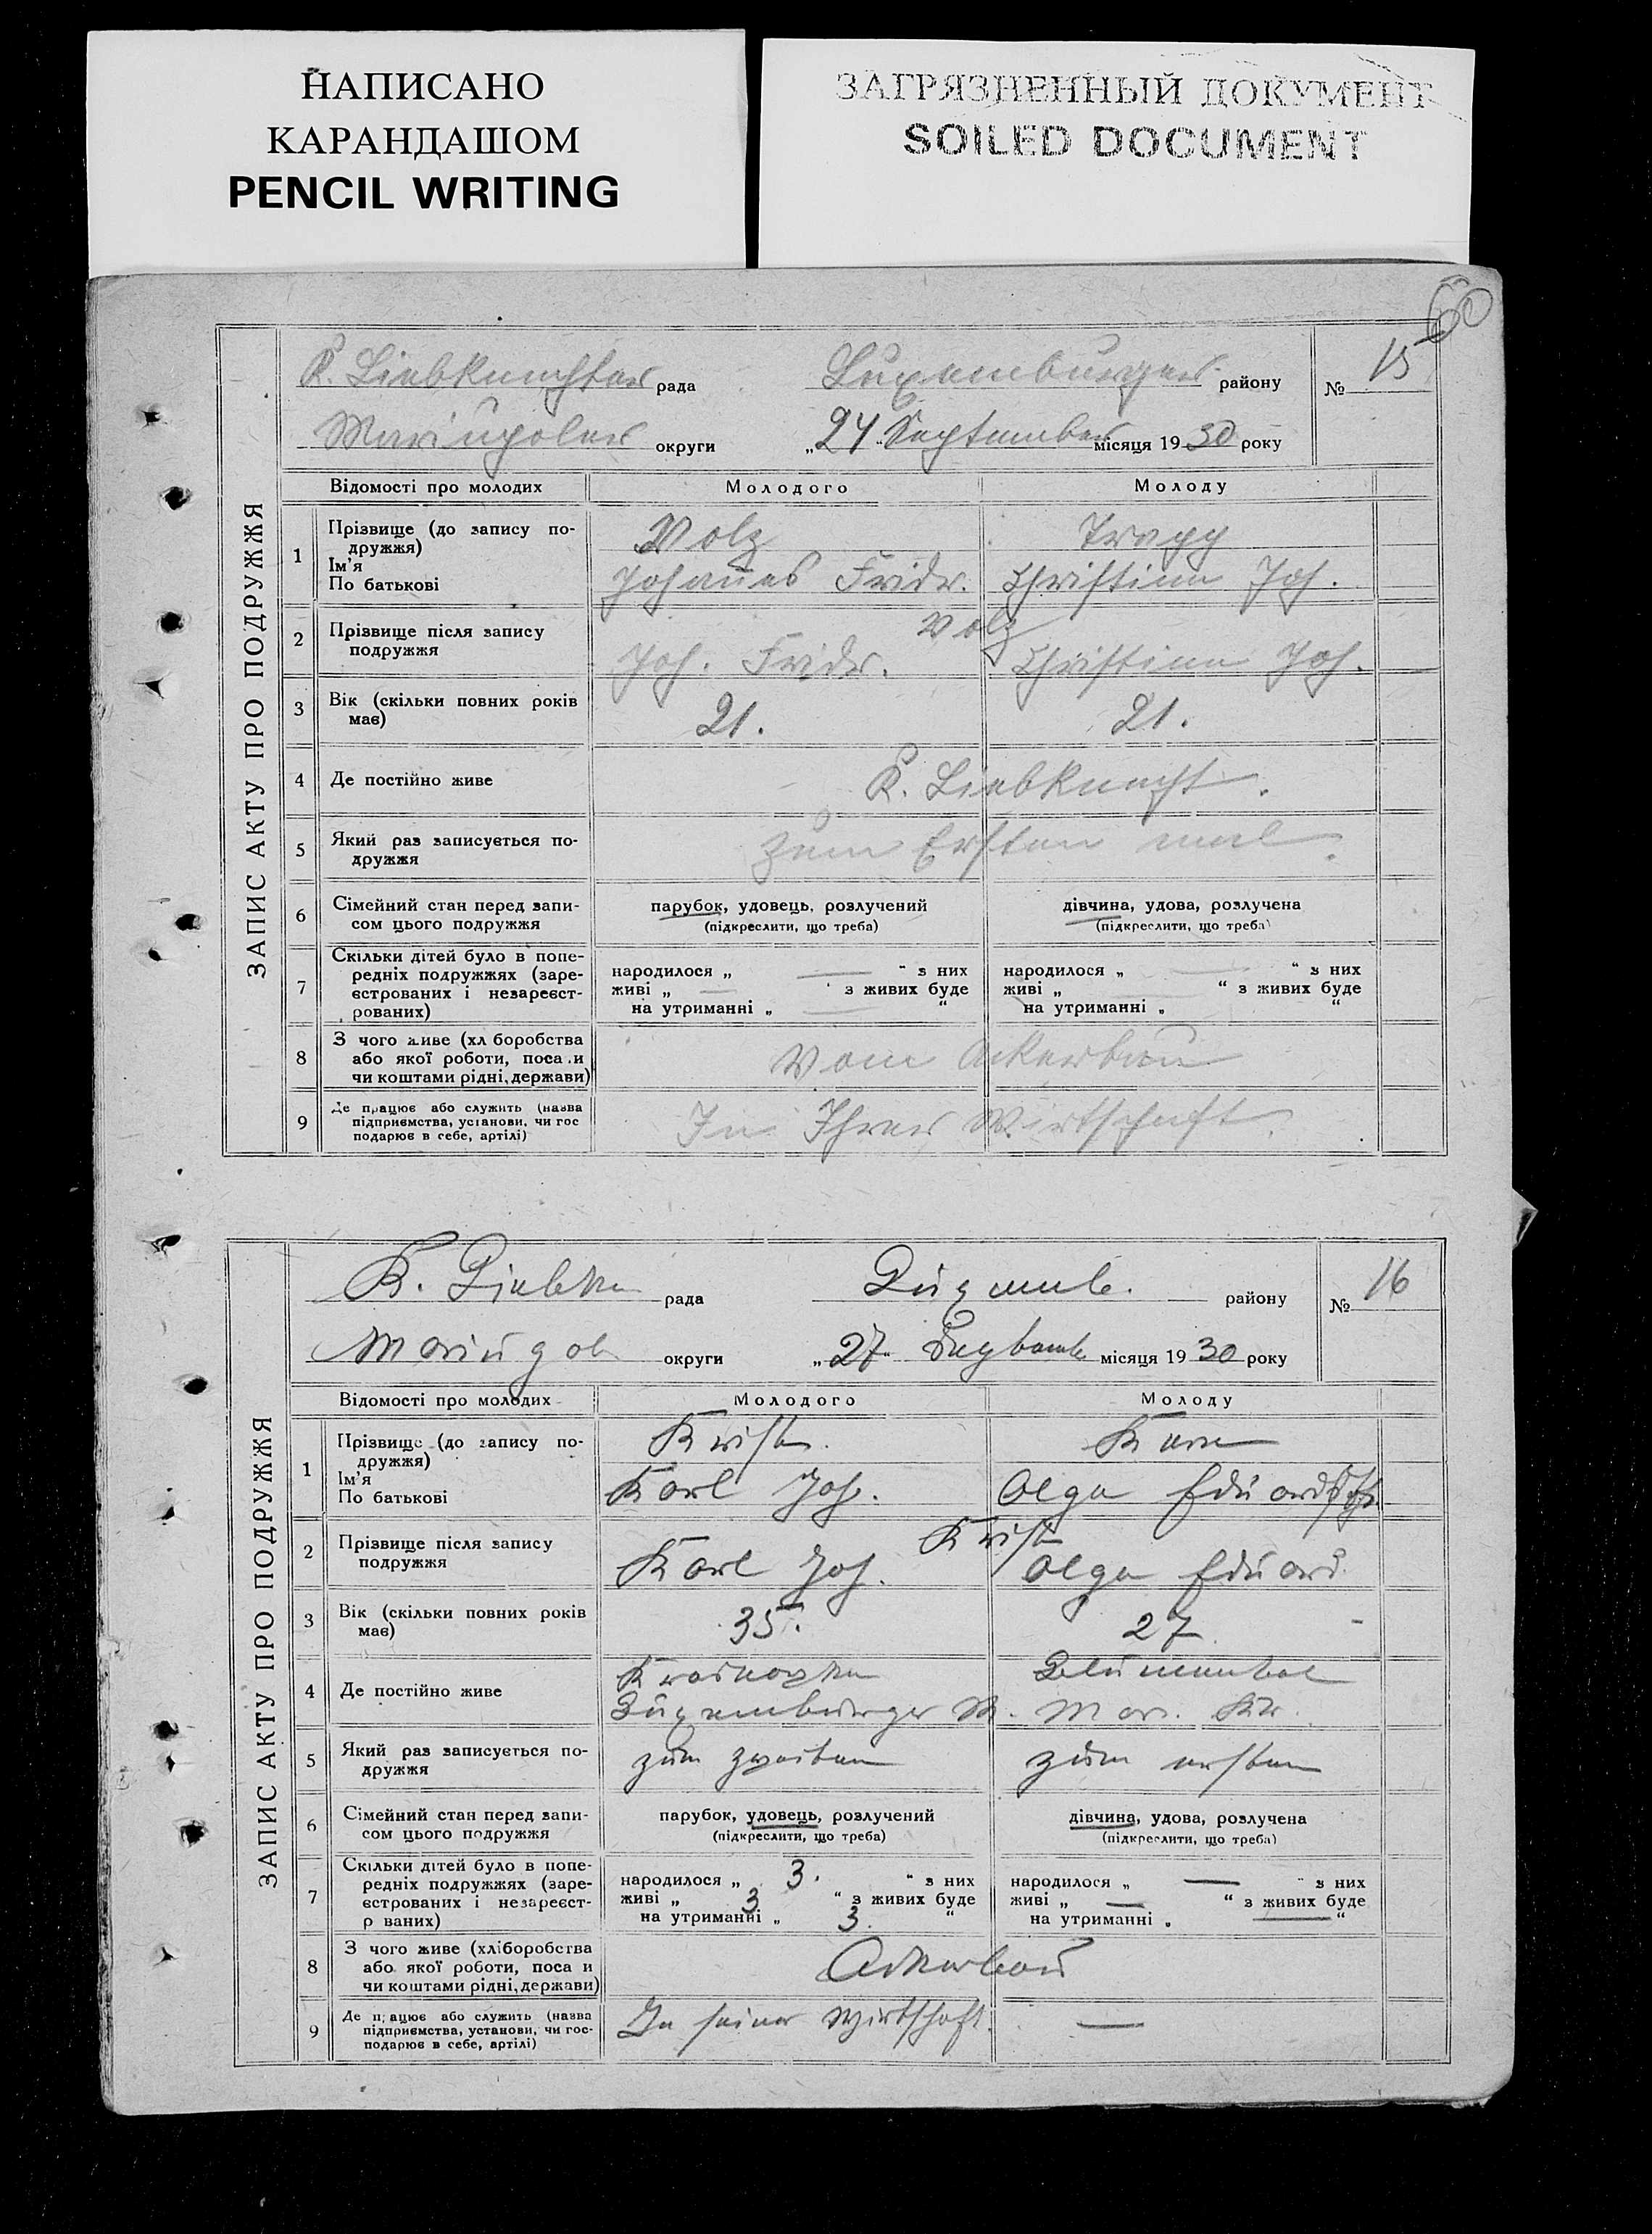 НАПИСАНО
КАРАНДАШОМ
PENCIL WRITING
ЗАГРЯЗНЕННЫЙ ДОКУМЕНТ
SOILED DOCUMENT
60
ЗАПИС АКТУ ПРО ПОДРУЖЖЯ
K. Liebknechter рада Luxemburger району № 15
Mariupoler округи „24" September місяця 1930 року
Відомості про молодих Молодого Молоду
1 Прізвище (до запису по-
дружжя) Volz Trapp
Ім'я
По батькові Johanes Fridr. Christine Joh.
2 Прізвище після запису
подружжя Volz
Joh. Fridr. Christine Joh.
3 Вік (скільки повних років
має) 21. 21.
4 Де постійно живе K. Liebknecht.
5 Який раз записується по-
дружжя Zum Ersten mal.
6 Сімейний стан перед запи-
сом цього подружжя
парубок, удовець, розлучений
(підкреслити, що треба)
дівчина, удова, розлучена
(підкреслити, що треба)
7 Скільки дітей було в попе-
редніх подружжях (заре-
єстрованих і незареєст-
рованих)
народилося „ — " з них
живі „ — " з живих буде
на утриманні „ — "
народилося „ — " з них
живі „ — " з живих буде
на утриманні „ "
8 З чого живе (хл боробства
або якої роботи, поса и
чи коштами рідні, держави)
Vom Ackerbau
9 Де працює або служить (назва
підприємства, установи, чи гос
подарює в себе, артілі)
In Ihrer Wirtschaft.
ЗАПИС АКТУ ПРО ПОДРУЖЖЯ
K. Liebkn рада Luxemb. району № 16
Mariupol округи „27" Septemb місяця 1930 року
Відомості про молодих Молодого Молоду
1 Прізвище (до запису по-
дружжя)
Ім'я
По батькові Karl Joh. Olga Eduard
2 Прізвище після запису
подружжя
Karl Joh. Olga Eduard.
3 Вік (скільки повних років
має) 35. 27
4 Де постійно живе Blumental
Luxemburger R. Mar. Kr.
5 Який раз записується по-
дружжя zum zweiten zum ersten
6 Сімейний стан перед запи-
сом цього подружжя
парубок, удовець, розлучений
(підкреслити, що треба)
дівчина, удова, розлучена
(підкреслити, що треба)
7 Скільки дітей було в попе-
редніх подружжях (заре-
єстрованих і незареєст-
р ваних)
народилося „ 3. " з них
живі „ 3 " з живих буде
на утриманні „ 3. "
народилося „ — " з них
живі „ — " з живих буде
на утриманні „ — "
8 З чого живе (хліборобства
або якої роботи, поса и
чи коштами рідні, держави)
Ackerbau
9 Де п ацює або служить (назва
підприємства, установи, чи гос-
подарює в себе, артілі)
In seiner Wirtschaft. —